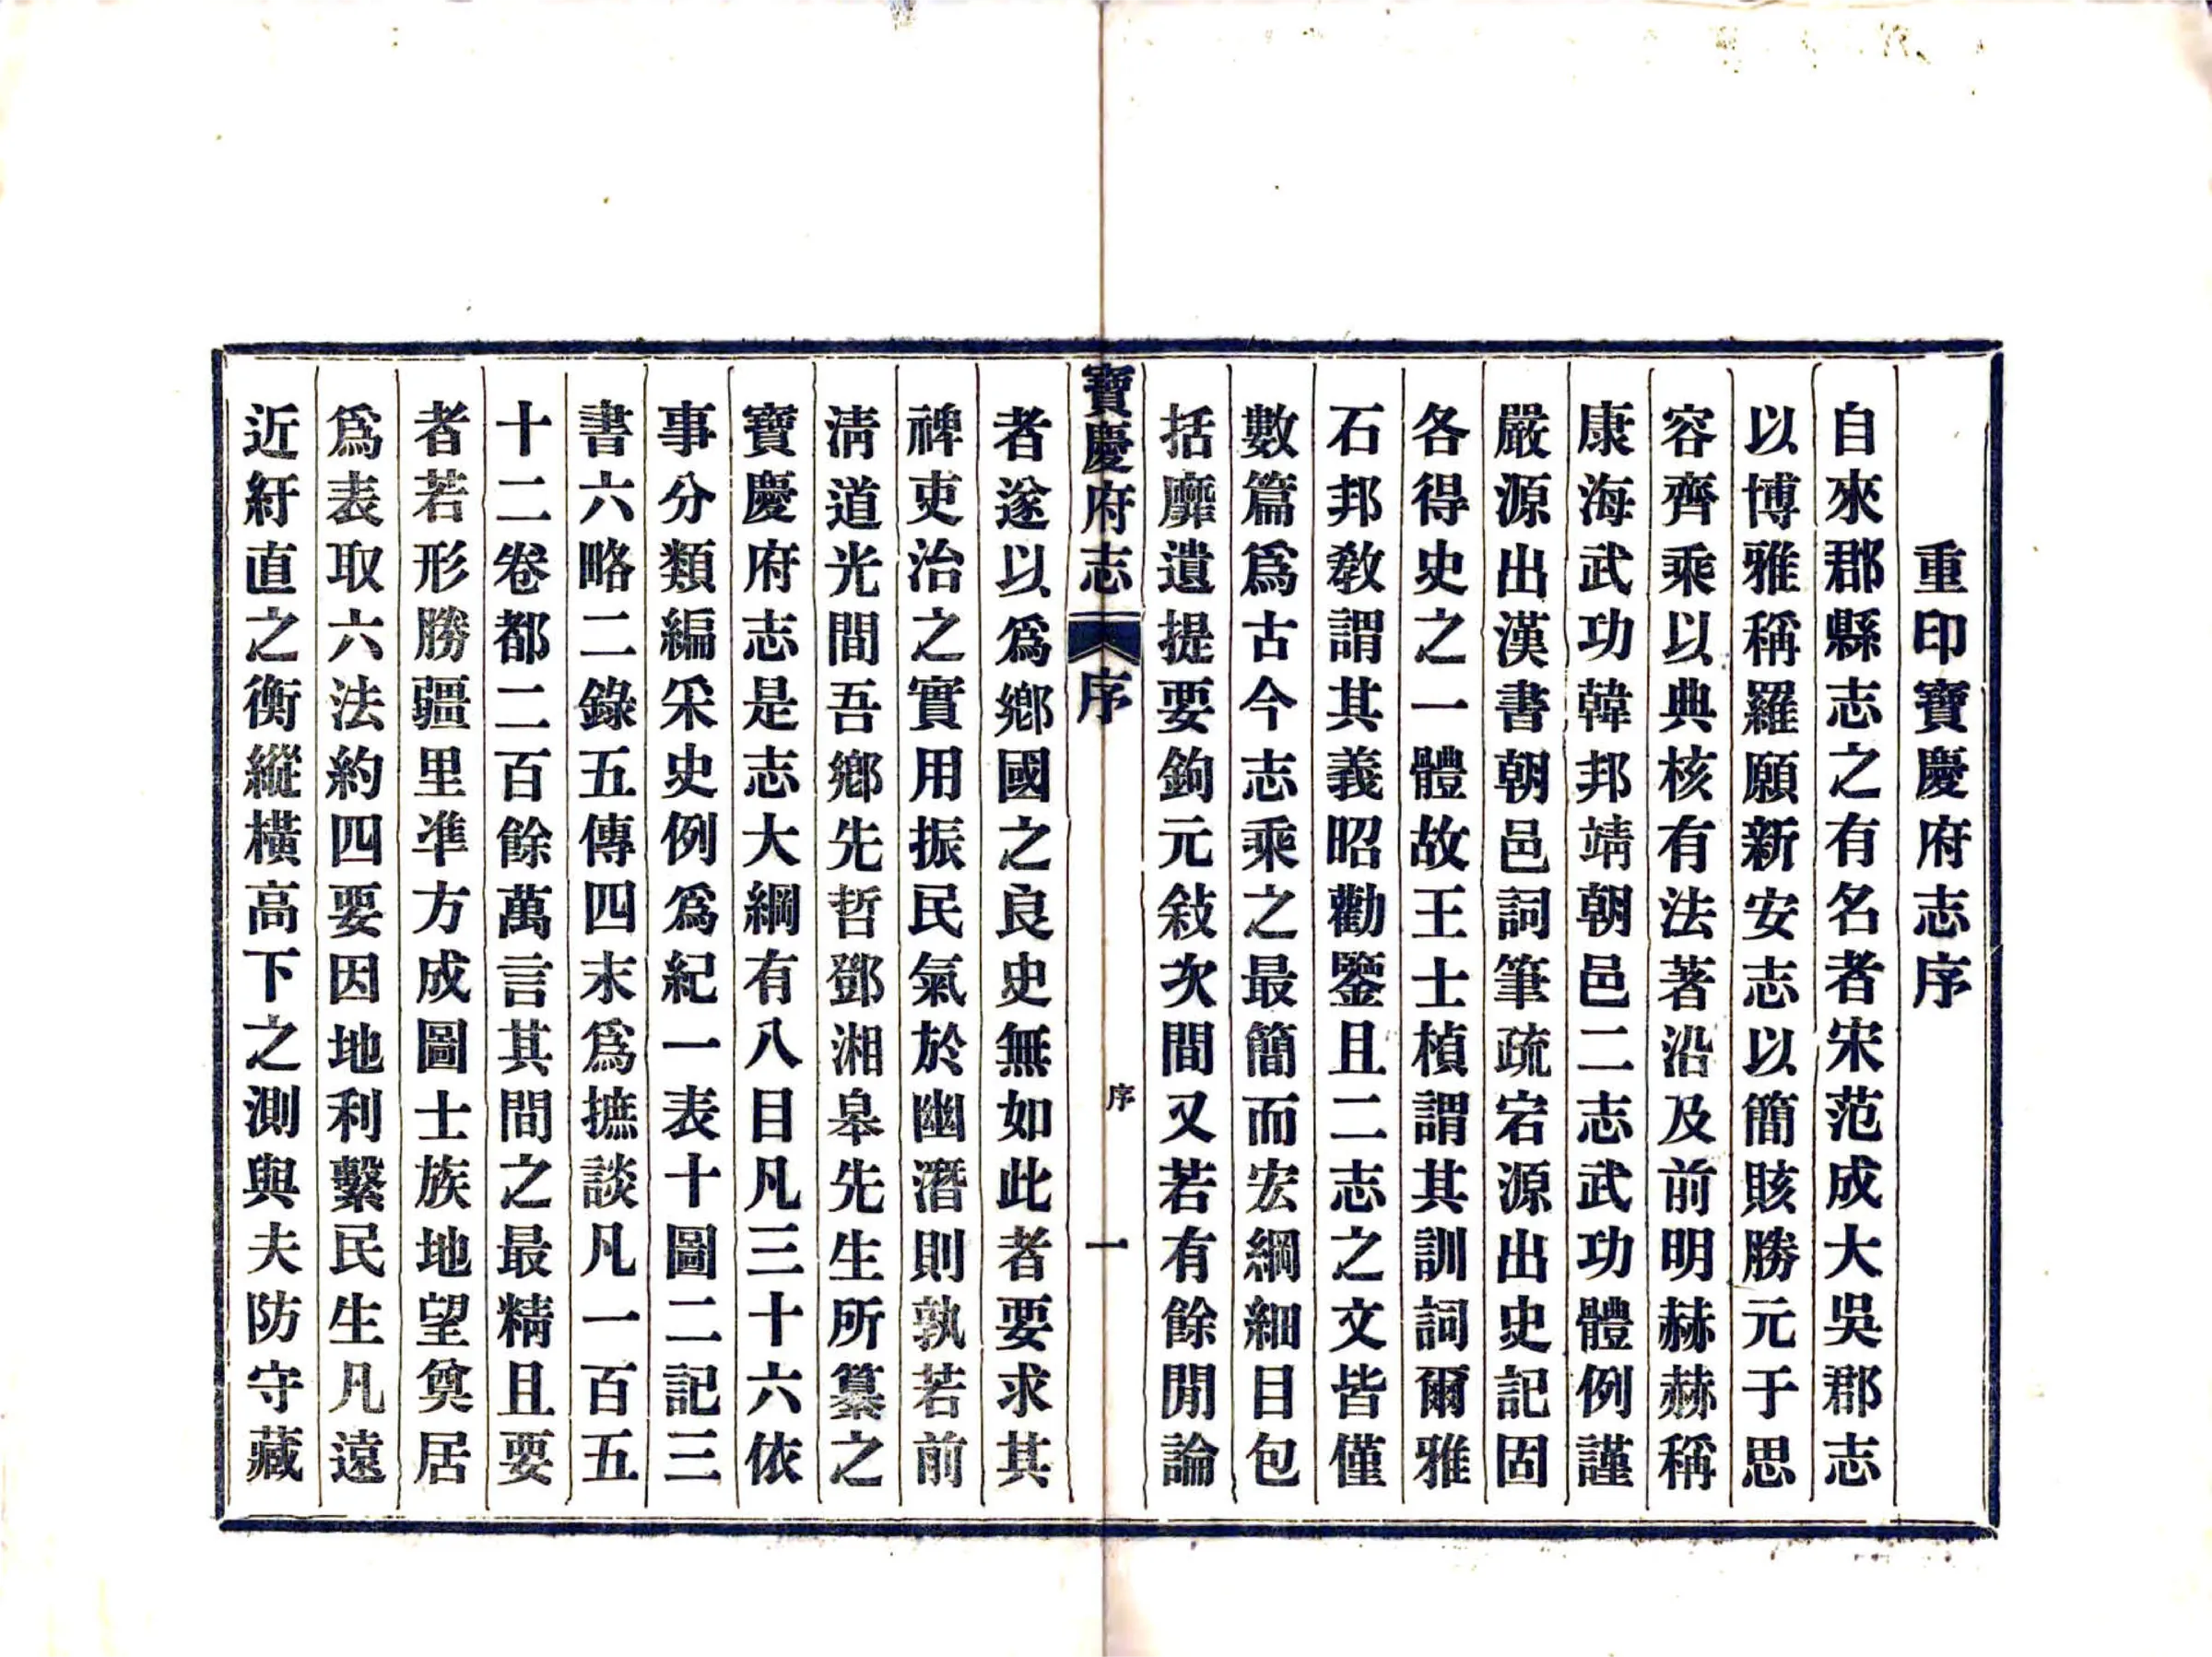 重印寶慶府志序
自來郡縣志之有名者宋范成大吳郡志
以博雅稱羅願新安志以簡賅勝元于思
容齊乘以典核有法著沿及前明赫赫稱
康海武功韓邦靖朝邑二志武功體例謹
嚴源出漢書朝邑詞筆疏宕源出史記固
各得史之一體故王士楨謂其訓詞爾雅
石邦敎謂其義昭勸鑒且二志之文皆僅
數篇爲古今志乘之最簡而宏綱細目包
括靡遺提要鉤元敍次間又若有餘閒論
寶慶府志 序 序 一
者遂以爲鄉國之良史無如此者要求其
裨吏治之實用振民氣於幽潛則孰若前
淸道光間吾鄉先哲鄧湘皋先生所纂之
寶慶府志是志大綱有八目凡三十六依
事分類編采史例爲紀一表十圖二記三
書六略二錄五傳四末爲摭談凡一百五
十二卷都二百餘萬言其間之最精且要
者若形勝疆里準方成圖士族地望奠居
爲表取六法約四要因地利繫民生凡遠
近紆直之衡縱橫高下之測與夫防守藏